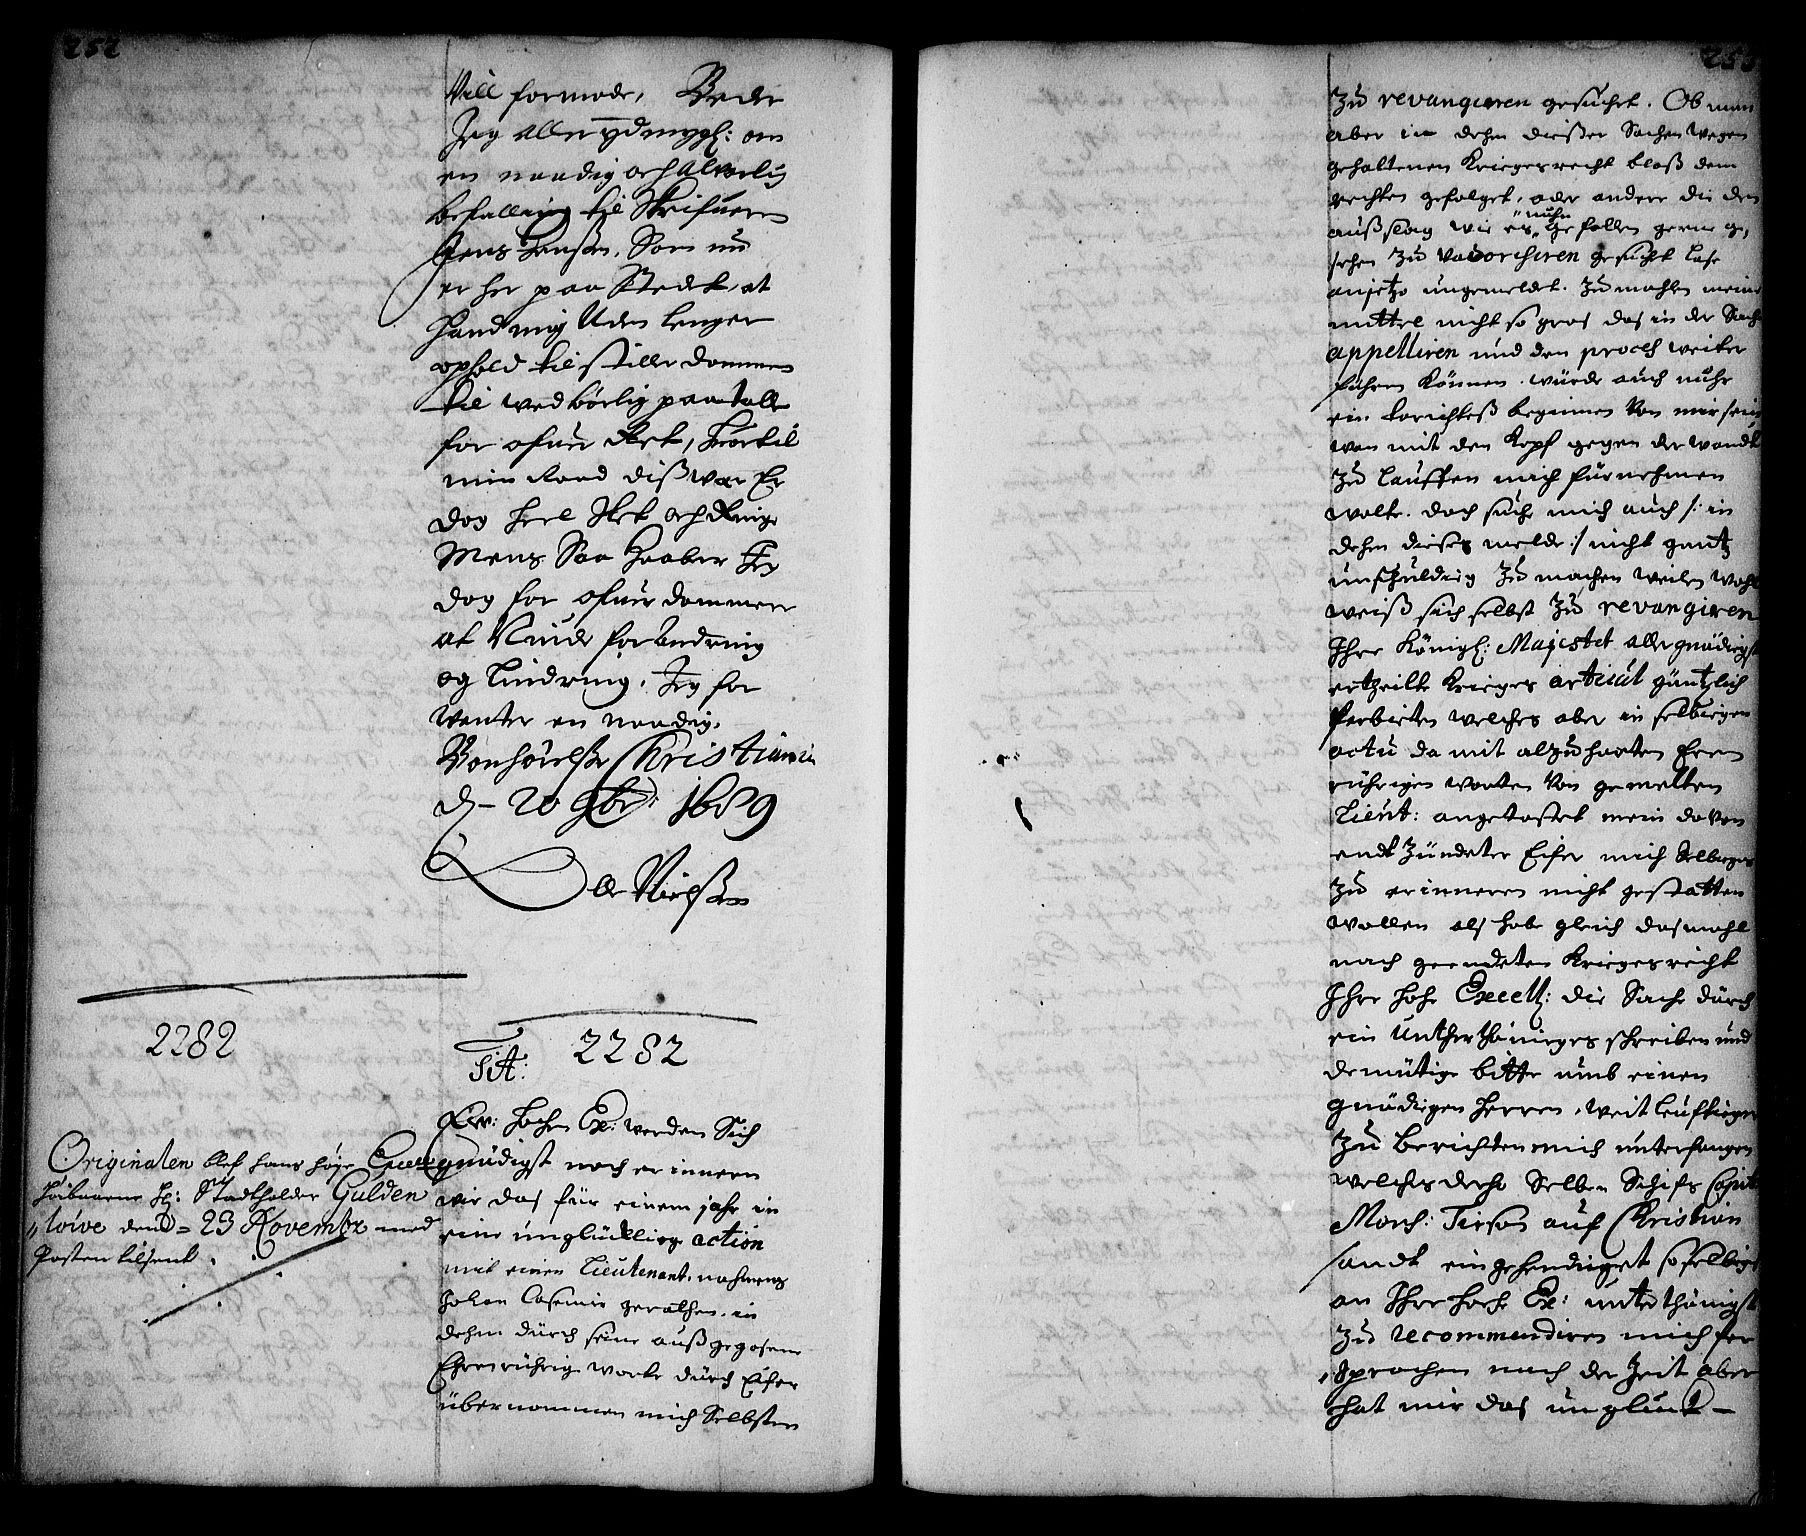 252
Vill formode, Beder
Jeg allerydmygl: om
en naadig och alvorlig
befalling til Skrifueren
Jens Hansen, Som nu
er her paa Stedet, at
Hand mig Uden lenger
ophold tilstiller dommen
til wedbørlig paatalle
for ofuer Ret, hvortil
min Raad diswer Er
dog heel slet och Ringe
Mens Saa haaber Jeg
dog for ofuer dommere
at Niude forandring
og Lindring, Jeg for
Venter en naadig
Bønhørelse Christiania
d- 20 9br: 1689
Olle Nielsen
2282
Originalen blef hans høye Excell
Høibaarne H: Stadtholder Gulden
„löwe den - 23 Novembr med
Posten tilsent.
Tit: 2282
Ew: Hohen Ex: werden Sich
gnädigst noch erinnern
wie das für einem jahr in
eine unglücklige action
mit einen Lieutenant, nahmens
Johan Casemir gerathen, in
dehm dürch seine außgegosene
Ehrenrührige worte dürch Eifer
übernommen mich Selbsten
253
Zu revangieren gesucht. Ob man
aber in dehm dießer Sachen wegen
gehaltenen Kriegesrecht bloß dem
rechten gefolget, oder andere die den
außslag wie es „nuhn gefallen gerne ge„
sehen zu favorchiren gesucht lase
anjetzo ungemeldet. Zumahlen meine
mittel nicht so gros das in der Sache
appelliren und den proces weiter
führen können. würde auch nuhr
ein torichteß beginnen von mir sein
wen mit den Kopf gegen der wandt
zu lauffen mich fürnehmen
wolte. doch suche mich auch /: in
dehm dieses melde :/ nicht gantz
unschuldig zu machen weilen wohl
weiß sich selbst zu revangiren
Ihre Königl: Majestet allergnädigst
ertheilte Krieges articul gäntzlich
Verbieten welches aber in selbiegen
actu da mit alzuharten Eren
rührigen worten von gemelten
Lieut: angetastet mein davon
endt zündeter Eifer mich Selbieges
zu erinneren nicht gestatten
wollen als habe gleich dasmahl
nach geendeten Kriegesrecht
Ihre hohe Excell: die Sache dürch
ein Unterthänieges schreiben und
demütige bitte umb einen
gnädiegen Herren, weitleuftieger
zu berichten mich unterfangen
welches derho Selben Schifs Capit:
Mons: Tirson auf Christian
sandt eingehendiget so selbiges
an Ihre hohe Ex: unterthänigst
zu recommendiren mich ver
„sprachen nach der Zeit aber
hat mir das unglück -